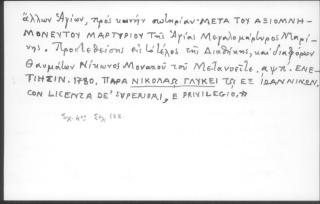 ἄλλων Ἁγίων, πρὸς κοινὴν σωτηρίαν· ΜΕΤΑ ΤΟΥ ΑΞΙΟΜΝΗ-
ΜΟΝΕΥΤΟΥ ΜΑΡΤΥΡΙΟΥ τῆς Ἁγίας Μεγαλομάρτυρος Μαρί-
νης. Προστεθείσης εἰς τὸ τέλος τῆς Διαθήκης, καὶ διαφόρων
Θαυμάτων Νίκωνος Μοναχοῦ τοῦ Μετανοεῖτε. αψπ. ΕΝΕ-
ΤΙΗΣΙΝ. 1780, ΠΑΡΑ ΝΙΚΟΛΑῼ ΓΛΥΚΕΙ Τῼ ΕΞ ΙΩΑΝΝΙΝΩΝ.
CON LICENZA DE' SUPERIORI, E PRIVILEGIO.